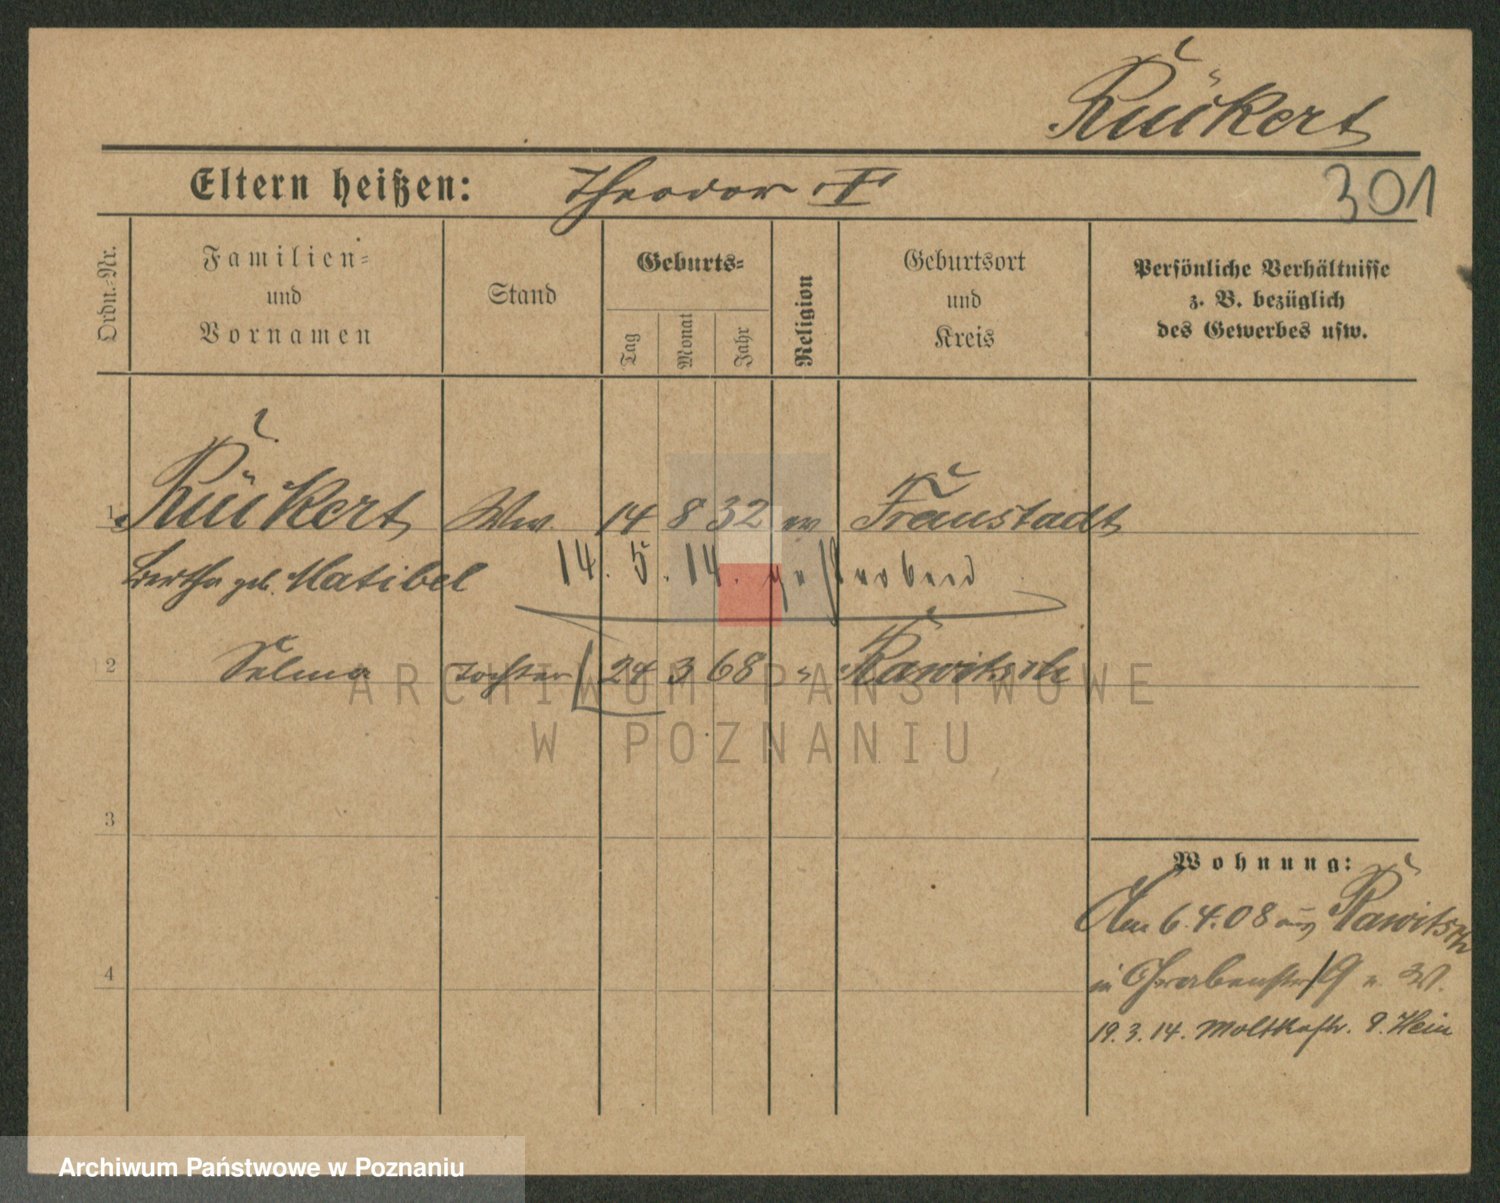 Rückert
Eltern heißen: Theodor †
301
Ordn.-Nr.
Familien-
und
Vornamen
Stand
Geburts-
Tag
Monat
Jahr
Religion
Geburtsort
und
Kreis
Persönliche Verhältnisse
z. B. bezüglich
des Gewerbes usw.
1 Rückert Ww. 14 8 32 ev Fraustadt
Bertha geb. Matibel 14. 5. 14. gestorben
2 Selma Tochter 24 3 68 " Rawitsch
ARCHIWUM PAŃSTWOWE
W POZNANIU
3
Wohnung:
Am 6.4.08 aus Rawitsch
in Grabenstr 9 
4
19.3.14. Moltkestr. 9. Hein
Archiwum Państwowe w Poznaniu